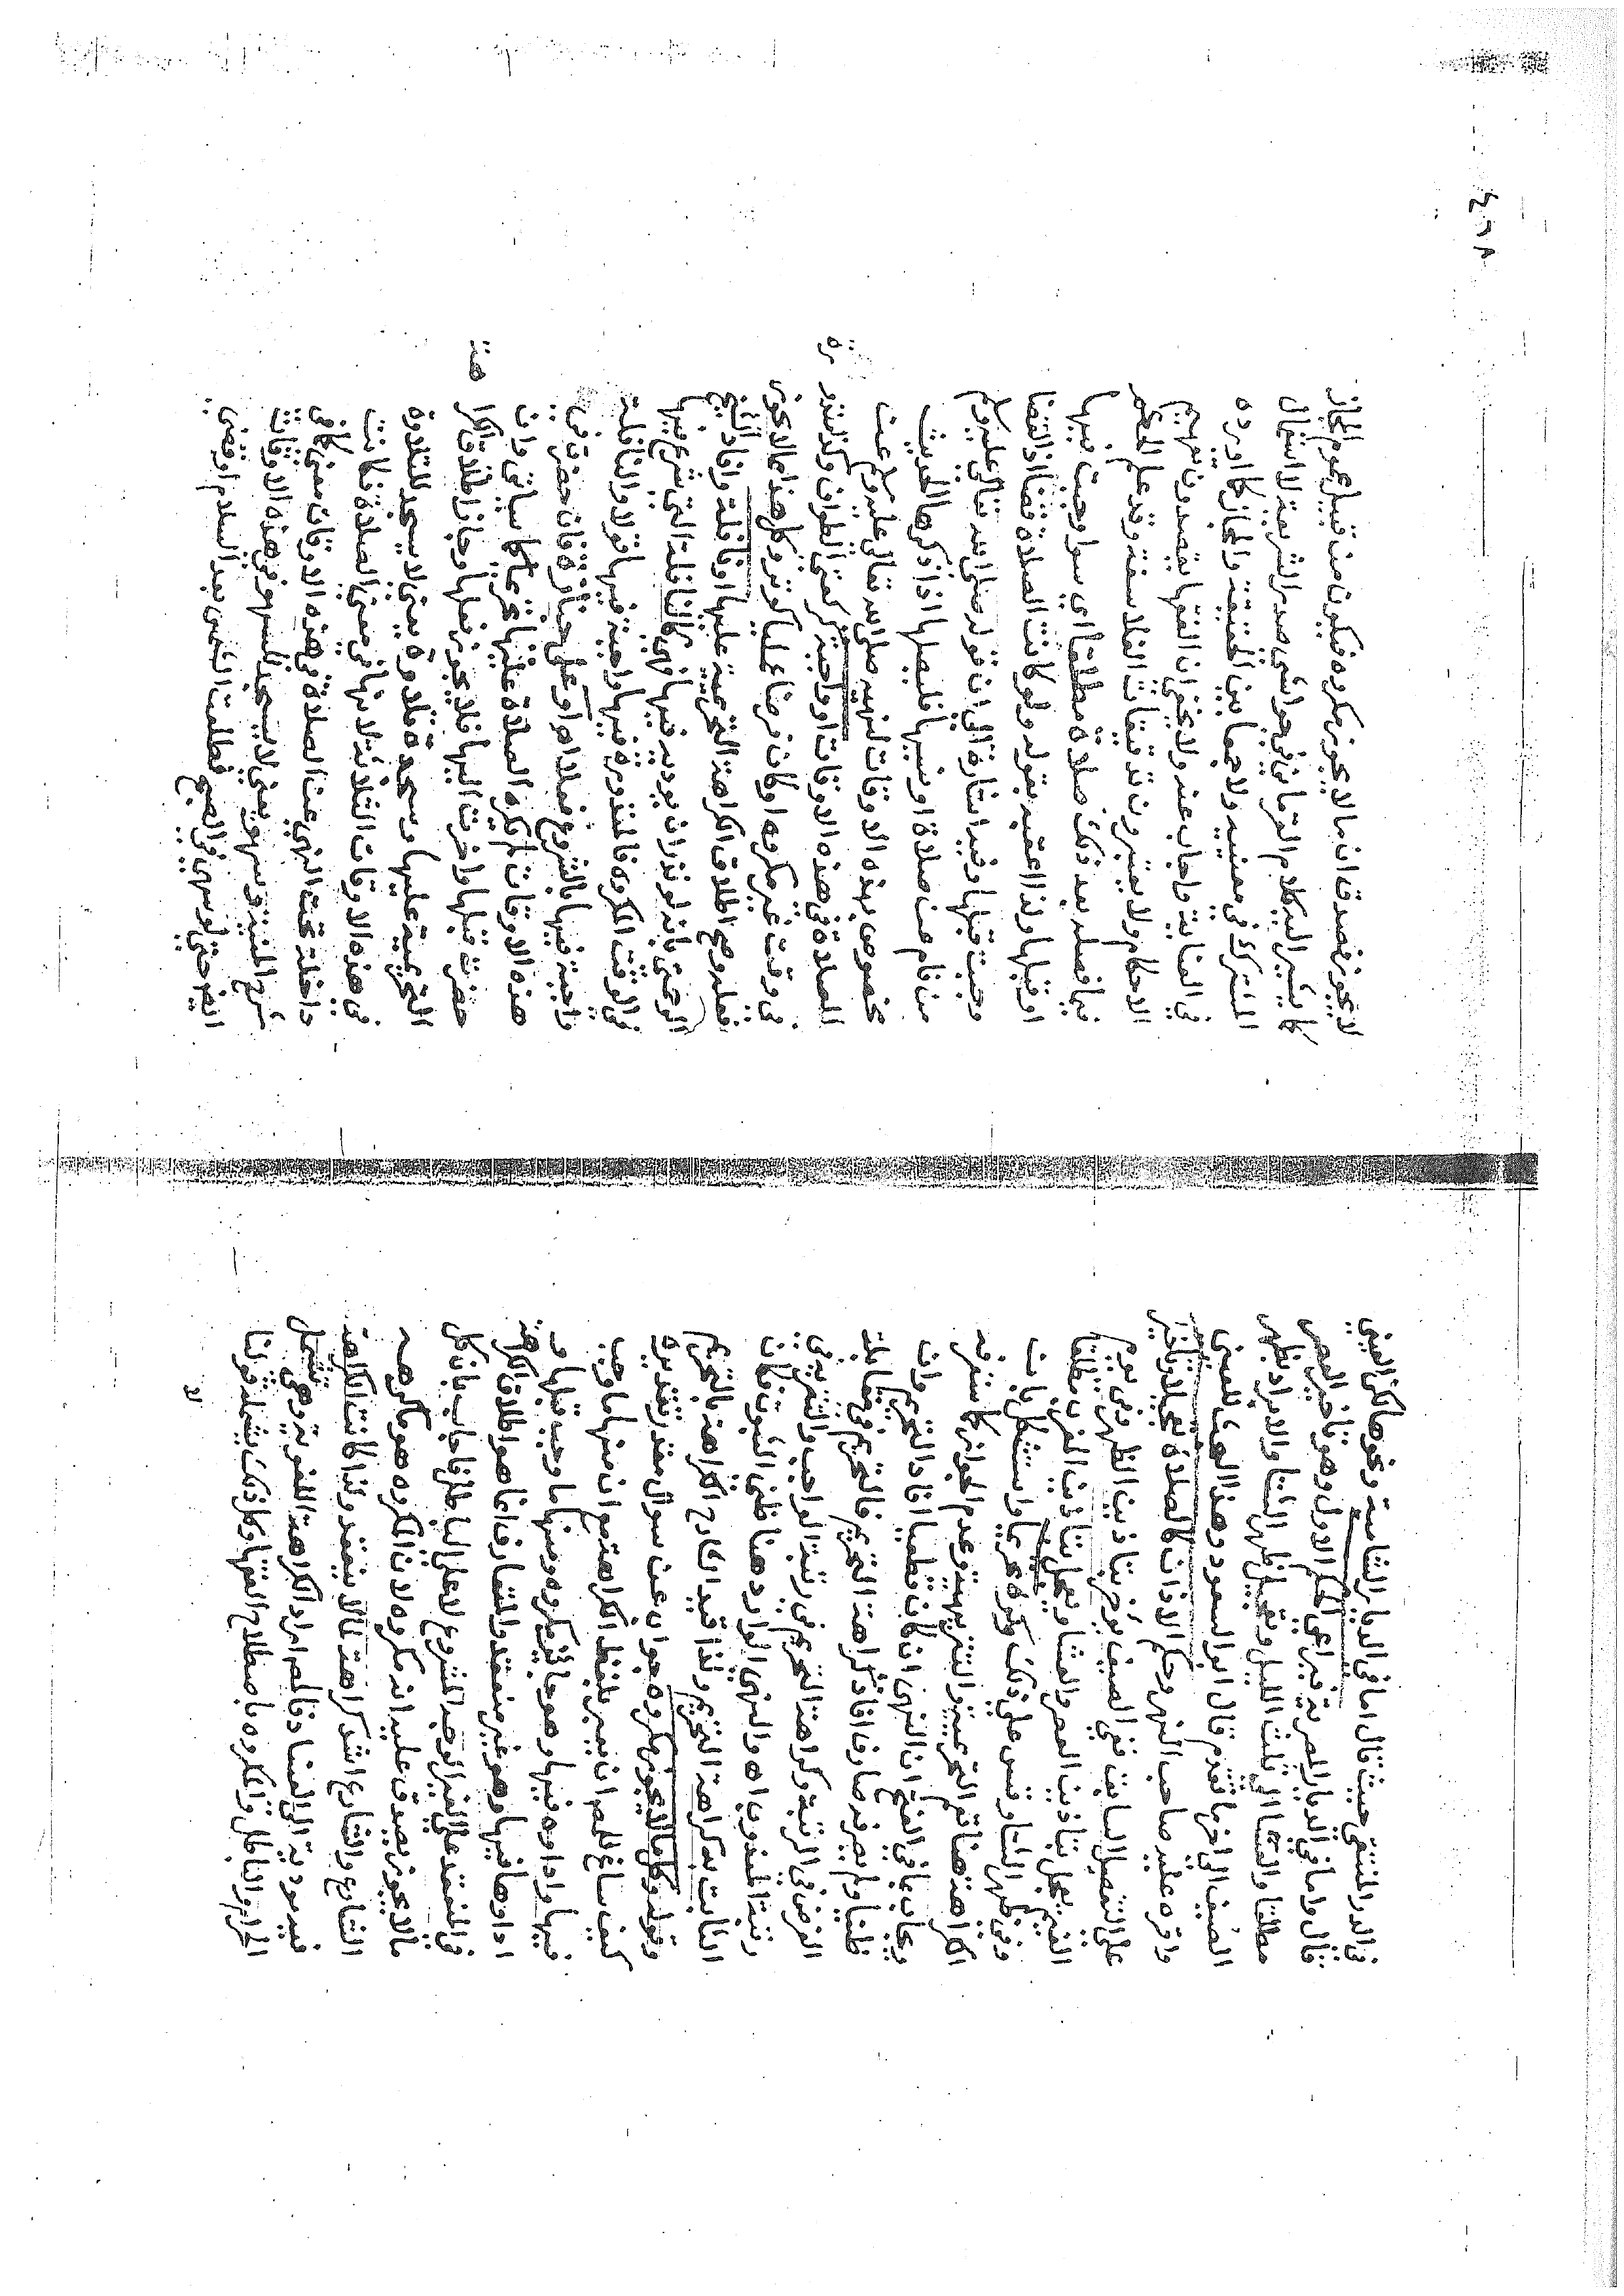 في الدر المنتقى حيث قال اما في الديار الشامية ونحوها لكن العيني
قال واما في الديار المصرية فيراعى الحكم الاول وهو تاخير العصر
مطلقا والعشا الى ثلث الليل وتعجيل ظهر الشتا والابراد بظهر
الصيف الى اخر ما تقدم قال ابو السعود وهذا العزو للعيني
واقره عليه صاحب النهر وحكم الاذان كالصلاة تعجيلا وتاخيرا
على التفصيل السابق ففي الصيف يؤخر بتاذين الظهر وفي يوم
الغيم يعجل بتاذين العصر والعشا ويعجل بتاذين المغرب مطلقا
وفي ظهر الشتا وقس على ذلك وكره تحريما واستشكل بان
الكراهة هنا تعم التحريمية والتنزيهية وعدم الجواز كما ستعرفه
ويجاب بما في الفتح ان النهى ان كان قطعيا افاد التحريم وان
ظنيا ولم يصرفه صارف افاد كراهة التحريم فالتحريم في مقابلة
الفرض في الرتبة وكراهة التحريم في رتبة الواجب والتنزيه في
رتبة المندوب اه والنهي الوارد هنا ظني الثبوت فكان
الثابت به كراهة التحريم ولذا قيد الشارح الكراهة بالتحريم
وقوله وكل ما لا يجوز مكروه جواب عن سوال مقدر تقديره
كيف ساغ للمص ان يعبر بلفظ الكراهة مع ان منها ما وجب
فيها واداوه فيها وهو جائز بكروه ومنها ما وجب قبلها و
اداوها فيها وهو غير منعقد والمتعارف انما هو اطلاق الكراهة
في المنعقد على الغير الوجه المشروع لا على الباطل فاجاب بان كل
ما لا يجوز يصدق عليه انه مكروه لان المكروه هو ما كرهه
الشارع والشارع اشد كراهة لما لا ينعقد ولذا كانت الكراهة
فيه مودية الى الفساد فالمص اراد الكراهة اللغوية وهي تشمل
الحرام والباطل والمكروه باصطلاح الفقها وكل ذلك يشمله قولنا
لا
لا يجوز فصدق ان ما لا يجوز مكروه فيكون من قبيل عموم المجاز
كما يشير اليه كلام القرماني في حواشي صدر الشريعة لا استعمال
المشترك في معنييه ولا جمعا بين الحقيقة والمجاز كما اورده
في العناية واجاب عنه ولا يخفى ان الفقها يقصدون تفهيم
الاحكام ولا يعتبرون تدقيقات الفلاسفة وقد علم الحكم
فيما فصله بعد ذلك صلاة مطلقا اي سوا وجبت فيها
او قبلها ولذا اعقبه بقوله ولو كانت الصلاة قضا اذ القضا
وجبت قبلها وفيه اشارة الى ان قوله صلى الله تعالى عليه وسلم
من نام عن صلاة او نسيها فليصلها اذا ذكرها الحديث
مخصوص بهذه الاوقات لنهيه صلى الله تعالى عليه وسلم عن
الصلاة في هذه الاوقات او واجبة كركعتي الطواف وكالنذر
في وقت غير مكروه او كان فرضا عمليا كوتر وكل هذا مما لا يجوز
فعله وصح اطلاق الكراهة التحريمية عليها او نافلة وافاد الشيخ
الرحمتي بانه لو نذر ان يوديه فيها فهي كالنافلة التي شرع فيها
في الوقت المكروه فالمنذورة فيها واجبة فيها قولا والنافلة
واجبة فيها بالشروع فعلا اه او على جنازة فان حضرت في
هذه الاوقات لم تكره الصلاة عليها تحريما كما سياتي وان
حضرت قبلها واخرت اليها فلا يجوز فعلها وجاز اطلاق الكرا
هة
التحريمية عليها وسجدة تلاوة يعني لا يسجد للتلاوة
في هذه الاوقات الثلاثة لانها في معنى الصلاة فكانت
داخلة تحت النهي عن الصلاة في هذه الاوقات معنى كما في
شرح المنية وسهو يعني لا يسجد للسهو في هذه الاوقات
ايضا حتى لو سهى في الصبح فطلعت الشمس بعد السلام او قضى